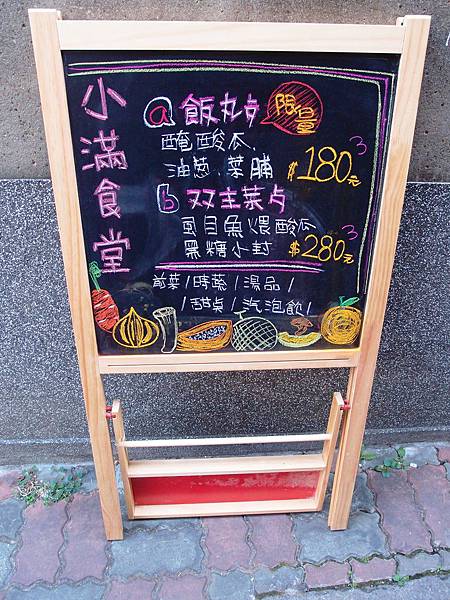 小滿食堂
ⓐ 飯丸丼 限量
醃酸瓜、
油蔥、菜脯 $180元
ⓑ 双主菜占
虱目魚煨酸瓜
黑糖小封 $280元
前菜/時蔬/湯品/
/甜點/汽泡飲/